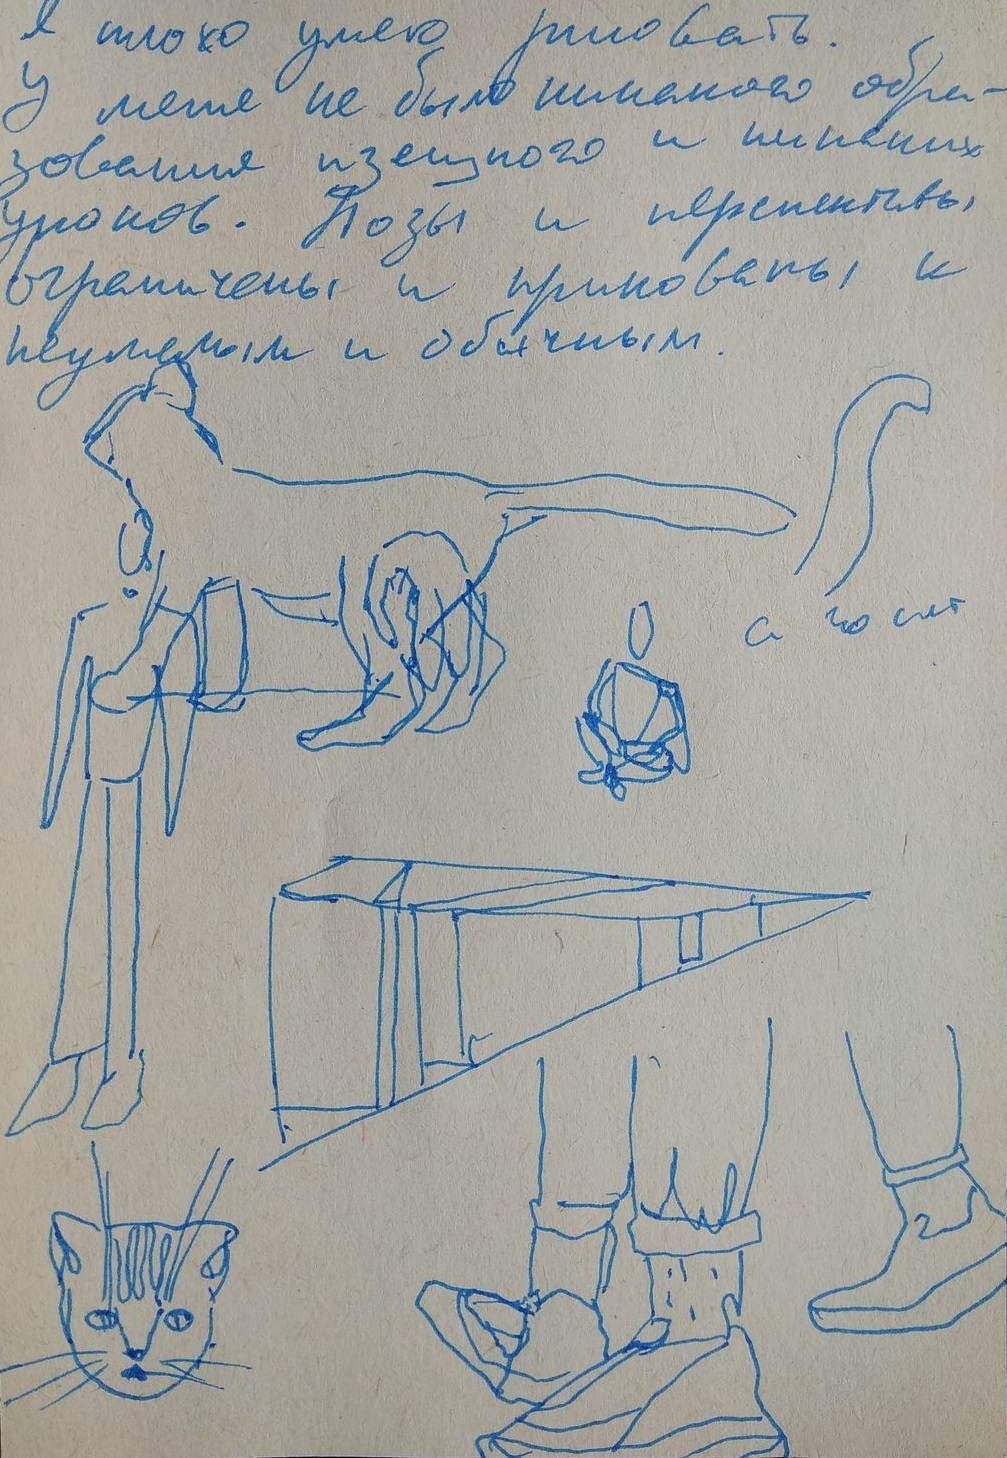 Я плохо умею рисовать.
У меня не было никакого обра-
зования изящного и никаких
уроков. Позы и перспективы
ограничены и прикованы к
неумелым и обычным.